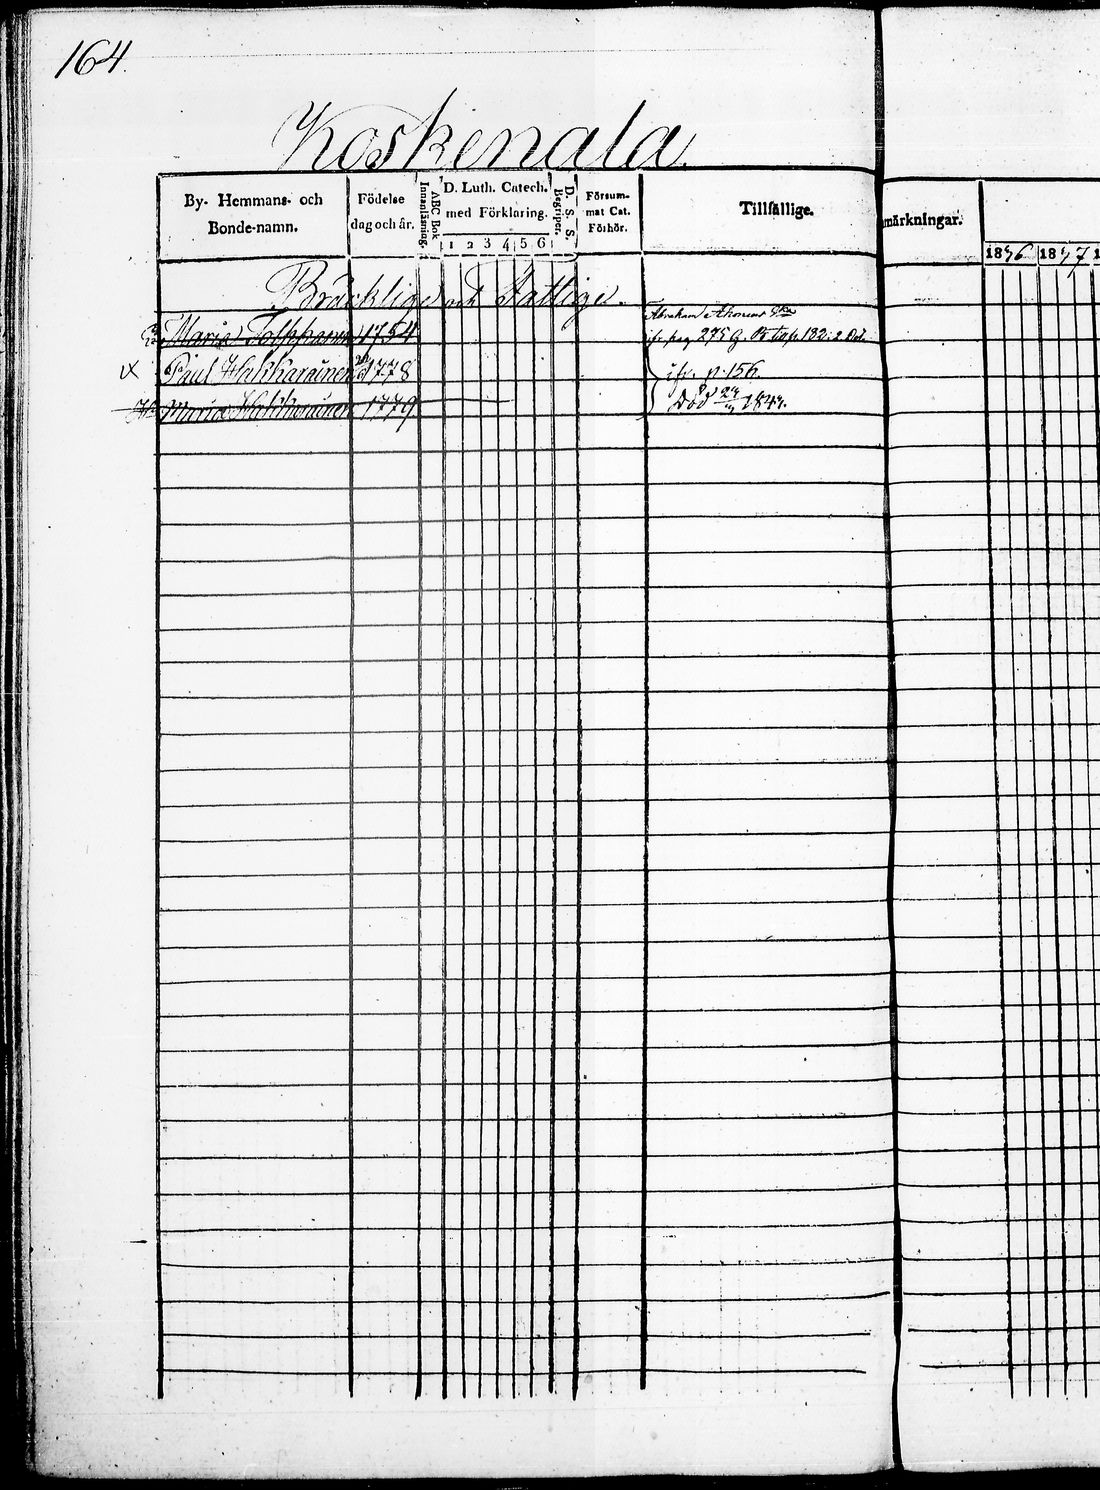 164.
Koskenala.
By- Hemmans- och
Bonde-namn.
Födelse
dag och år.
ABC Bok
Innanläsning.
D. Luth. Catech.
med Förklaring.
1 2 3 4 5 6
D. S. S.
Begriper.
Försum-
mat Cat.
Förhör.
Tillfällige.
märkningar.
1836 1837 1
Bräcklige och Fattige.
Maria 1754
Abraham
pag 275
Paul Hakkarainen 1778
p. 156.
Maria Hakkarainen 1779
Död